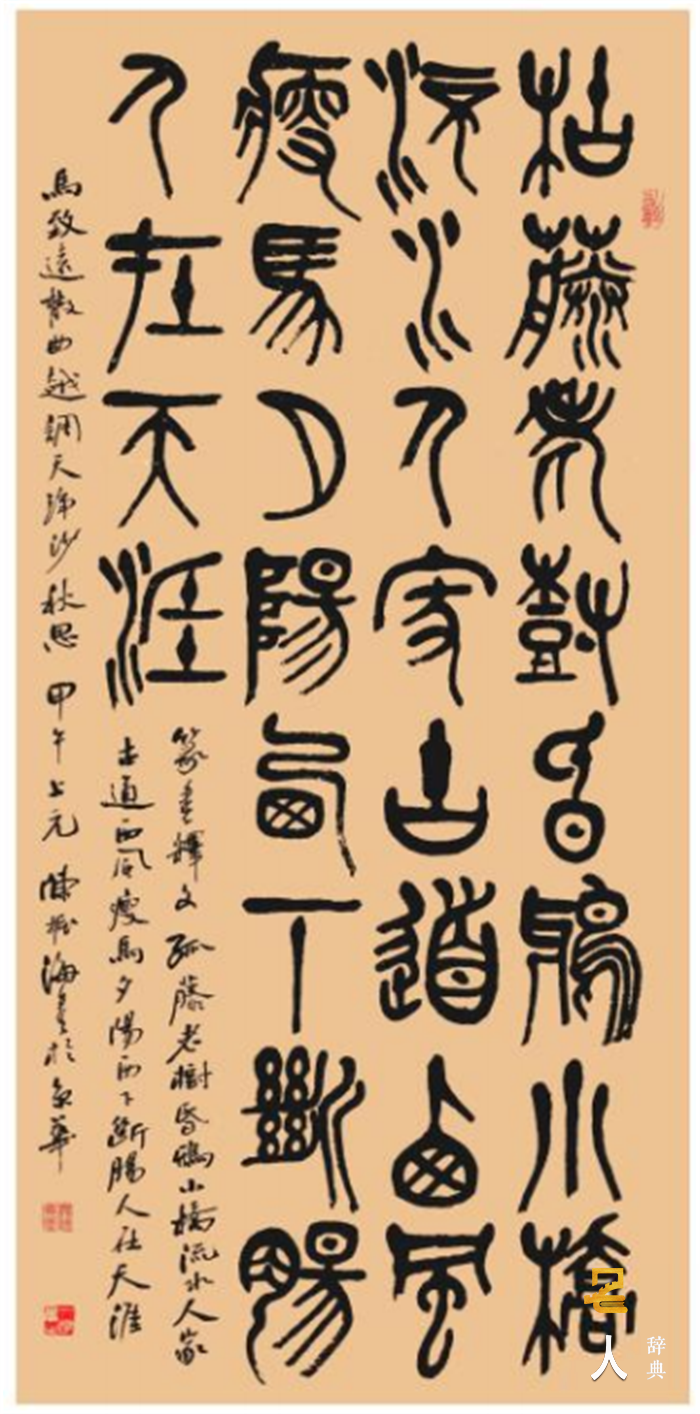 枯藤老樹昏鴉小橋
流水人家古道西風
瘦馬夕陽西下斷腸
人在天涯
篆書釋文 孤藤老樹昏鴉小橋流水人家
古道西風瘦馬夕陽西下斷腸人在天涯
馬致遠散曲越調天淨沙秋思 甲午上元 陳海書於京華
名人
辞典